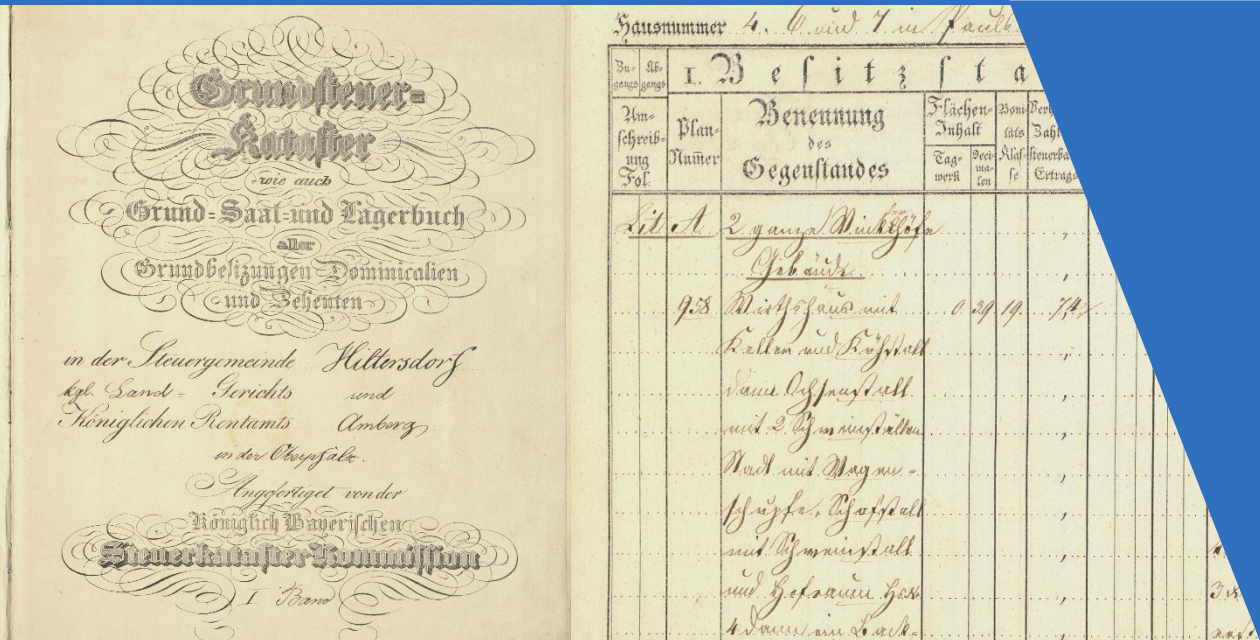 Grundsteuer=
Kataster
wie auch
Grund=Saal=und Lagerbuch
aller
Grundbesizungen Dominicalien
und Zehenten
in der Steuergemeinde Hiltersdorf
kgl. Land= Gerichts und
Königlichen Rentamts Amberg
in der Oberpfalz.
Angefertiget von der
Königlich Bayerischen
Steuerkataster Kommission
I Band
Hausnummer 4. 6 und 7 in
Zu=
gangs
Ab=
gangs
I. Besitzsta
Um=
schreib=
ung
Fol.
Plan=
Num̄er
Benennung
des
Gegenstandes
Flächen=
Inhalt
Tag=
werk
Deci=
ma=
len
Boni
täts
Klas=
se
Zahl
Ertrags=
Lit A 2 ganze
Gebäude.
958 Wirthshaus mit 0 39 19
Keller und Kühstall
dann Ochsenstall
mit 2 Schweinställen
Stadl mit Wagen=
schupfe, Schafstall
mit Schweinstall
und Hofraum
4 dann ein Back=